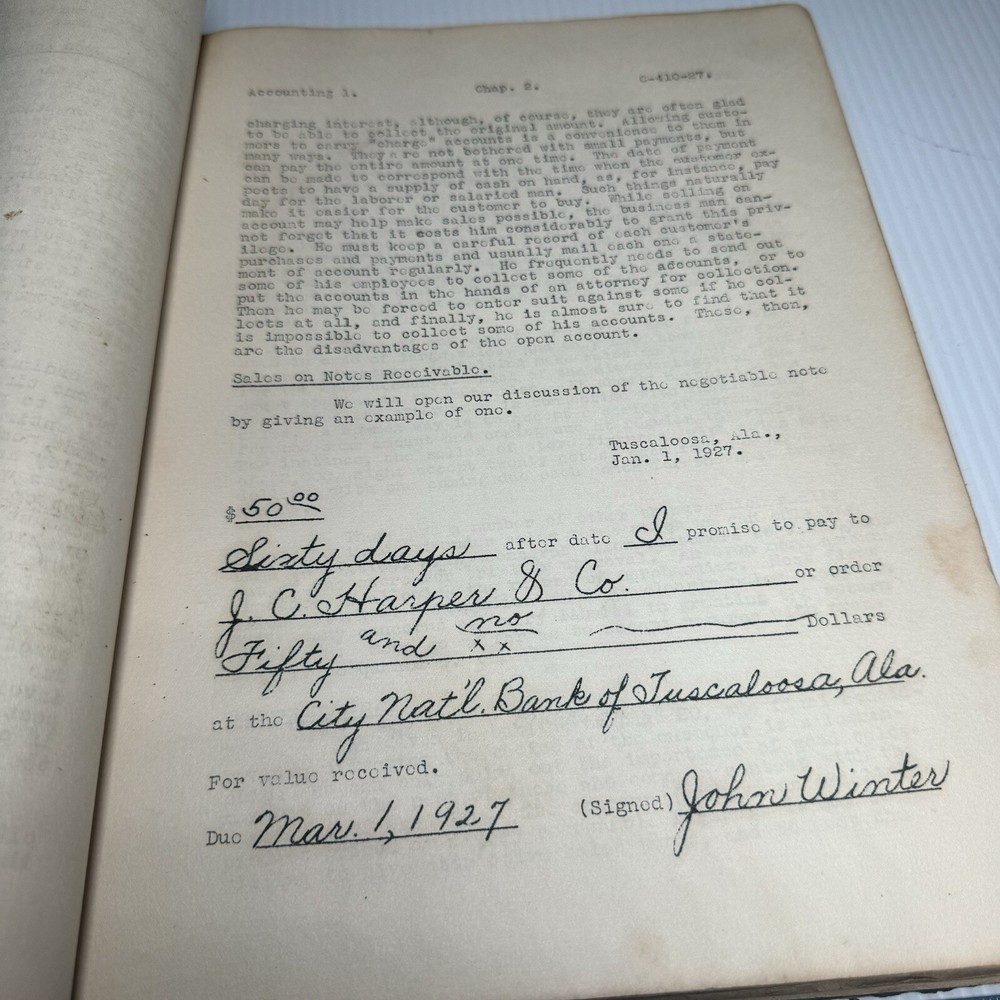 Accounting 1. Chap. 2. C-410-27.
charging interest, although, of course, they are often glad
to be able to collect the original amount. Allowing custo-
mers to carry "charge" accounts is a convenience to them in
many ways. They are not bothered with small payments, but
can pay the entire amount at one time. The date of payment
can be made to correspond with the time when the customer ex-
pects to have a supply of cash on hand, as, for instance, pay
day for the laborer or salaried man. Such things naturally
make it easier for the customer to buy. While selling on
account may help make sales possible, the business man can-
not forget that it costs him considerably to grant this priv-
ilege. He must keep a careful record of each customer's
purchases and payments and usually mail each one a state-
ment of account regularly. He frequently needs to send out
some of his employees to collect some of the accounts, or to
put the accounts in the hands of an attorney for collection.
Then he may be forced to enter suit against some if he col-
lects at all, and finally, he is almost sure to find that it
is impossible to collect some of his accounts. These, then,
are the disadvantages of the open account.
Sales on Notes Receivable.
We will open our discussion of the negotiable note
by giving an example of one.
Tuscaloosa, Ala.,
Jan. 1, 1927.
$ 50 00
Sixty days after date I promise to pay to
J. C. Harper & Co. or order
Fifty and no/xx Dollars
at the City Nat'l. Bank of Tuscaloosa, Ala.
For value received.
Due Mar. 1, 1927 (Signed) John Winter